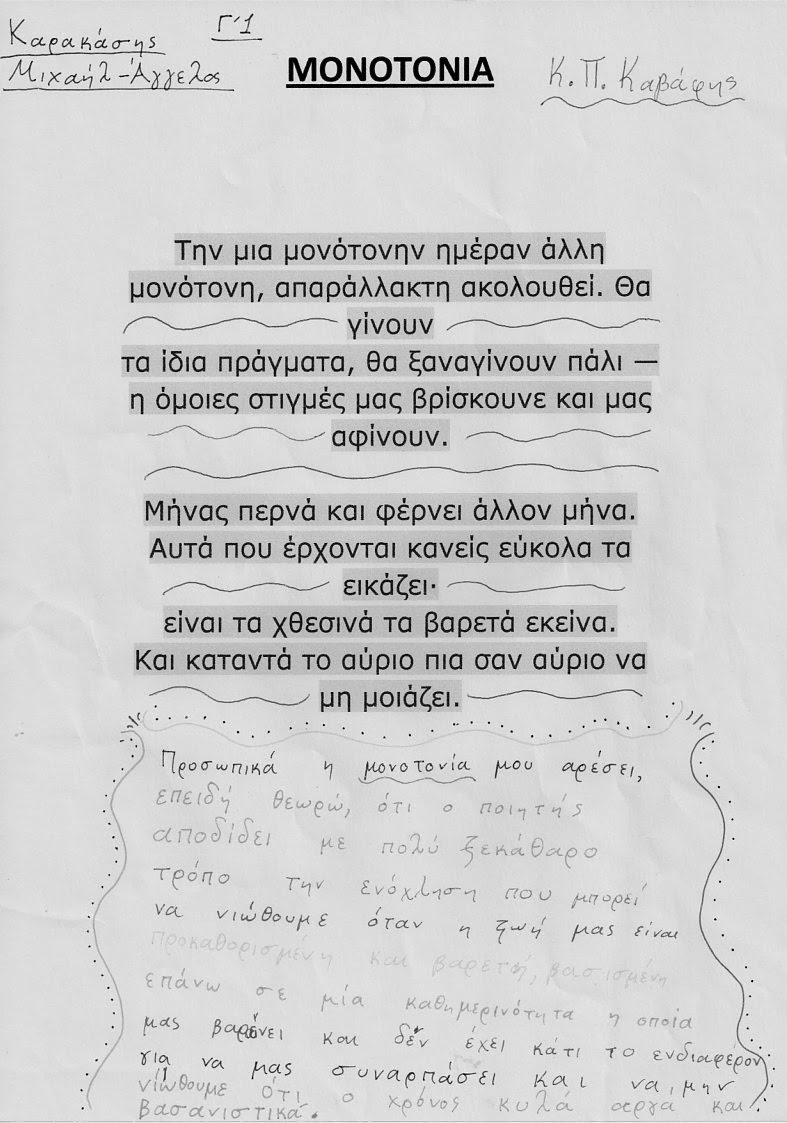 Καρακάσης
Γ'1
Μιχαήλ-Άγγελος
ΜΟΝΟΤΟΝΙΑ
Κ.Π. Καβάφης
Την μια μονότονην ημέραν άλλη
μονότονη, απαράλλακτη ακολουθεί. Θα
γίνουν
τα ίδια πράγματα, θα ξαναγίνουν πάλι —
η όμοιες στιγμές μας βρίσκουνε και μας
αφίνουν.
Μήνας περνά και φέρνει άλλον μήνα.
Αυτά που έρχονται κανείς εύκολα τα
εικάζει·
είναι τα χθεσινά τα βαρετά εκείνα.
Και καταντά το αύριο πια σαν αύριο να
μη μοιάζει.
Προσωπικά η μονοτονία μου αρέσει,
επειδή θεωρώ, ότι ο ποιητής
αποδίδει με πολύ ξεκάθαρο
τρόπο την ενόχληση που μπορεί
να νιώθουμε όταν η ζωή μας είναι
προκαθορισμένη και βαρετή, βασισμένη
επάνω σε μία καθημερινότητα η οποία
μας βαραίνει και δεν έχει κάτι το ενδιαφέρον
για να μας συναρπάσει και να μην
νιώθουμε ότι ο χρόνος κυλά αργα και
βασανιστικά.